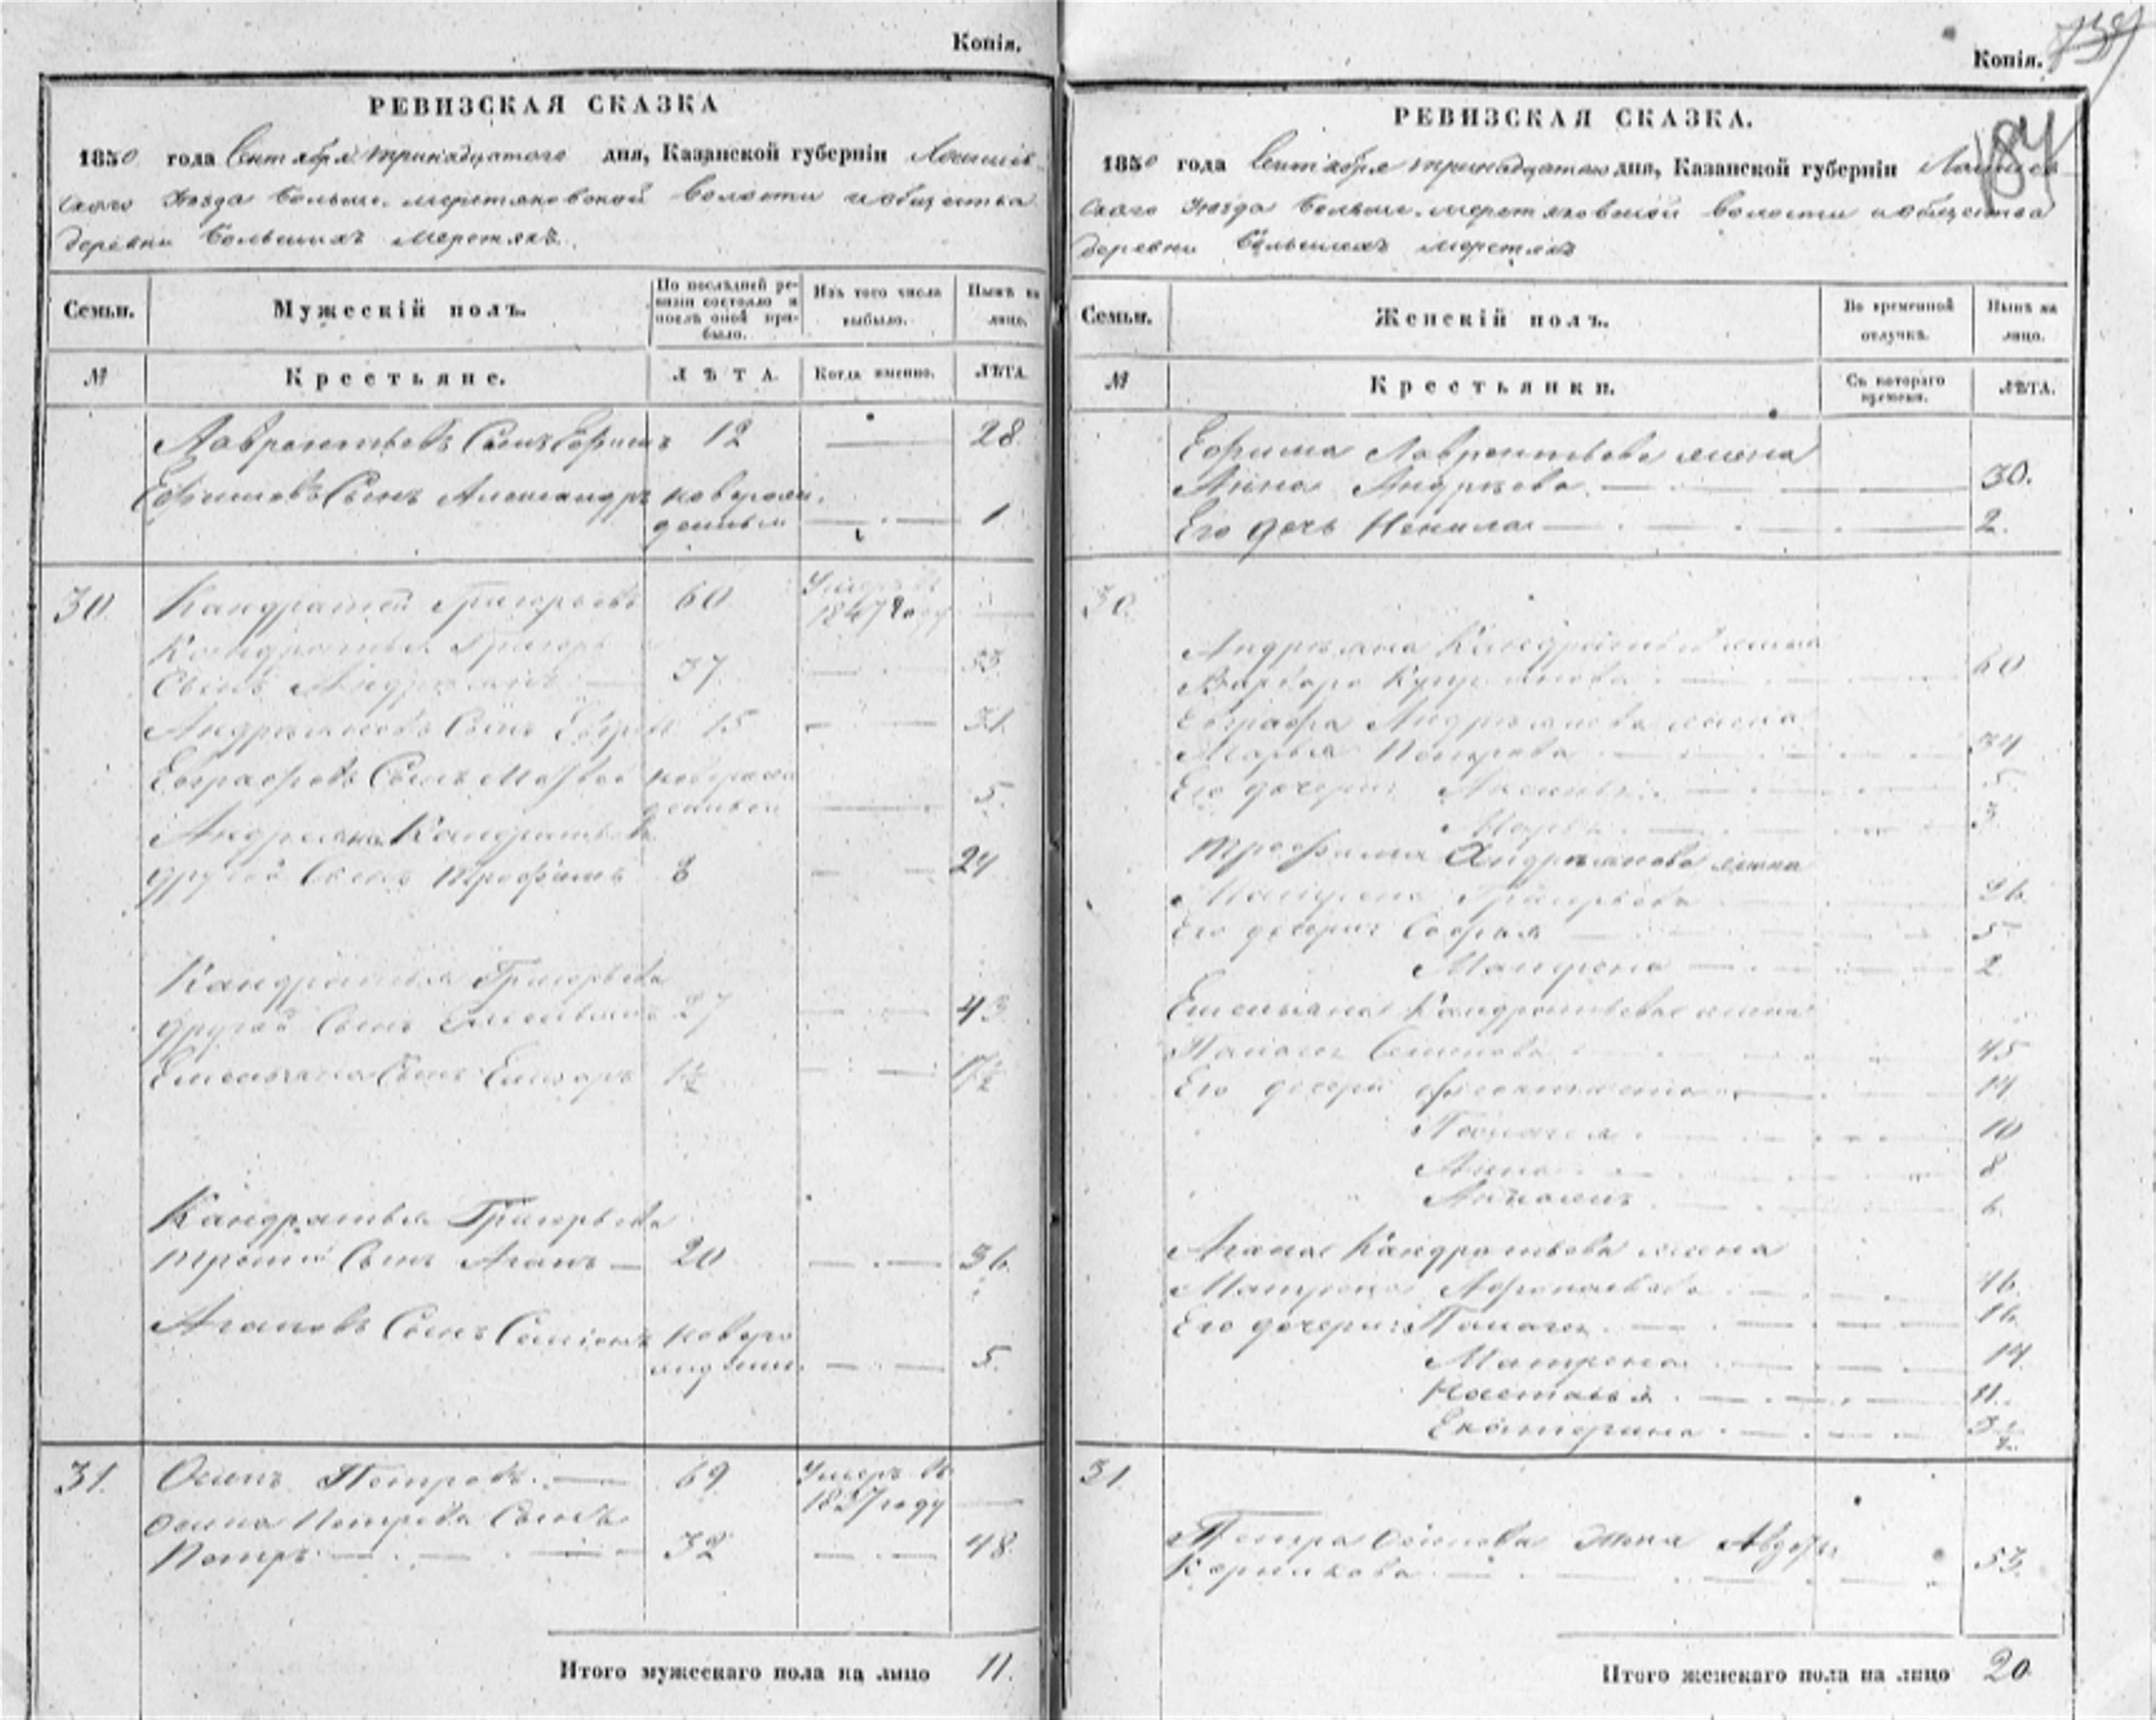 Копія.
РЕВИЗСКАЯ СКАЗКА
1850 года Сентября тринадцатого дня, Казанской губерніи Лаишев-
скаго Уезда Больше-меретяковской Волости и общества
деревни Большихъ меретякъ.
Семьи.
Мужескій полъ.
По послѣдней ре-
визіи состояло и
послѣ оной при-
было.
Изъ того числа
выбыло.
Нынѣ на
лицо.
№
Крестьяне.
ЛѢТА.
Когда именно.
ЛѢТА.
Лаврентьевъ Сынъ Ефимъ 12 — 28
Ефимовъ Сынъ Александръ новорож-
денный — 1
30. Кандратей Григорьевъ 60 Умеръ въ
1847 году —
Кондратья Григорь
Сынъ Андреянъ 37 — 53
Андреяновъ Сынъ Евграф 15 — 31.
Евграфовъ Сынъ Матвей новорож
денный — 5.
Андреяна Кандратьева
другой Сынъ Трофимъ 8 — 24
Кандратья Григорьева
другой Сынъ Емельянъ 27 — 43
Емельяна Сынъ Елизаръ 1½ — 17½
Кандратья Григорьева
третий Сынъ Агапъ — 20 — 36.
Агаповъ Сынъ Семионъ новоро
жденный — 5.
31. Осипъ Петровъ. — 69 Умеръ въ
1837 году —
Осипа Петрова Сынъ
Петръ — 32 — 48.
Итого мужескаго пола на лицо 11.
Копія.
739
184
РЕВИЗСКАЯ СКАЗКА.
1850 года Сентября тринадцатого дня, Казанской губерніи Лаишев-
скаго Уезда Больше-меретяковской Волости и общества
деревни Большихъ меретякъ
Семьи.
Женскій полъ.
Во временной
отлучкѣ.
Нынѣ на
лицо.
№
Крестьянки.
Съ котораго
времени.
ЛѢТА.
Ефима Лаврентьева жена
Анна Андреева — 30.
Его дочь Ненила — 2.
30.
Андреяна Кандратьева жена
Варвара Куприянова — 60
Евграфа Андреянова жена
Марья Петрова — 34
Его дочери: Аксинья — 5
Марья — 3
Трофима Андреянова жена
Матрена Григорьева 26
Его дочери: Софья — 5
Матрена — 2
Емельяна Кандратьева жена
Палагея Семенова — 45
Его дочери — 14
Палагея — 10
Анна — 8
— 6.
Агапа Кандратьева жена
Матрена — 46.
Его дочери: Палагея — 16.
Матрена — 14.
Настасья — 11.
Екатерина — 3½
31.
Петра Осипова Жена Авдотья
Корнилова — 53.
Итого женскаго пола на лицо 20